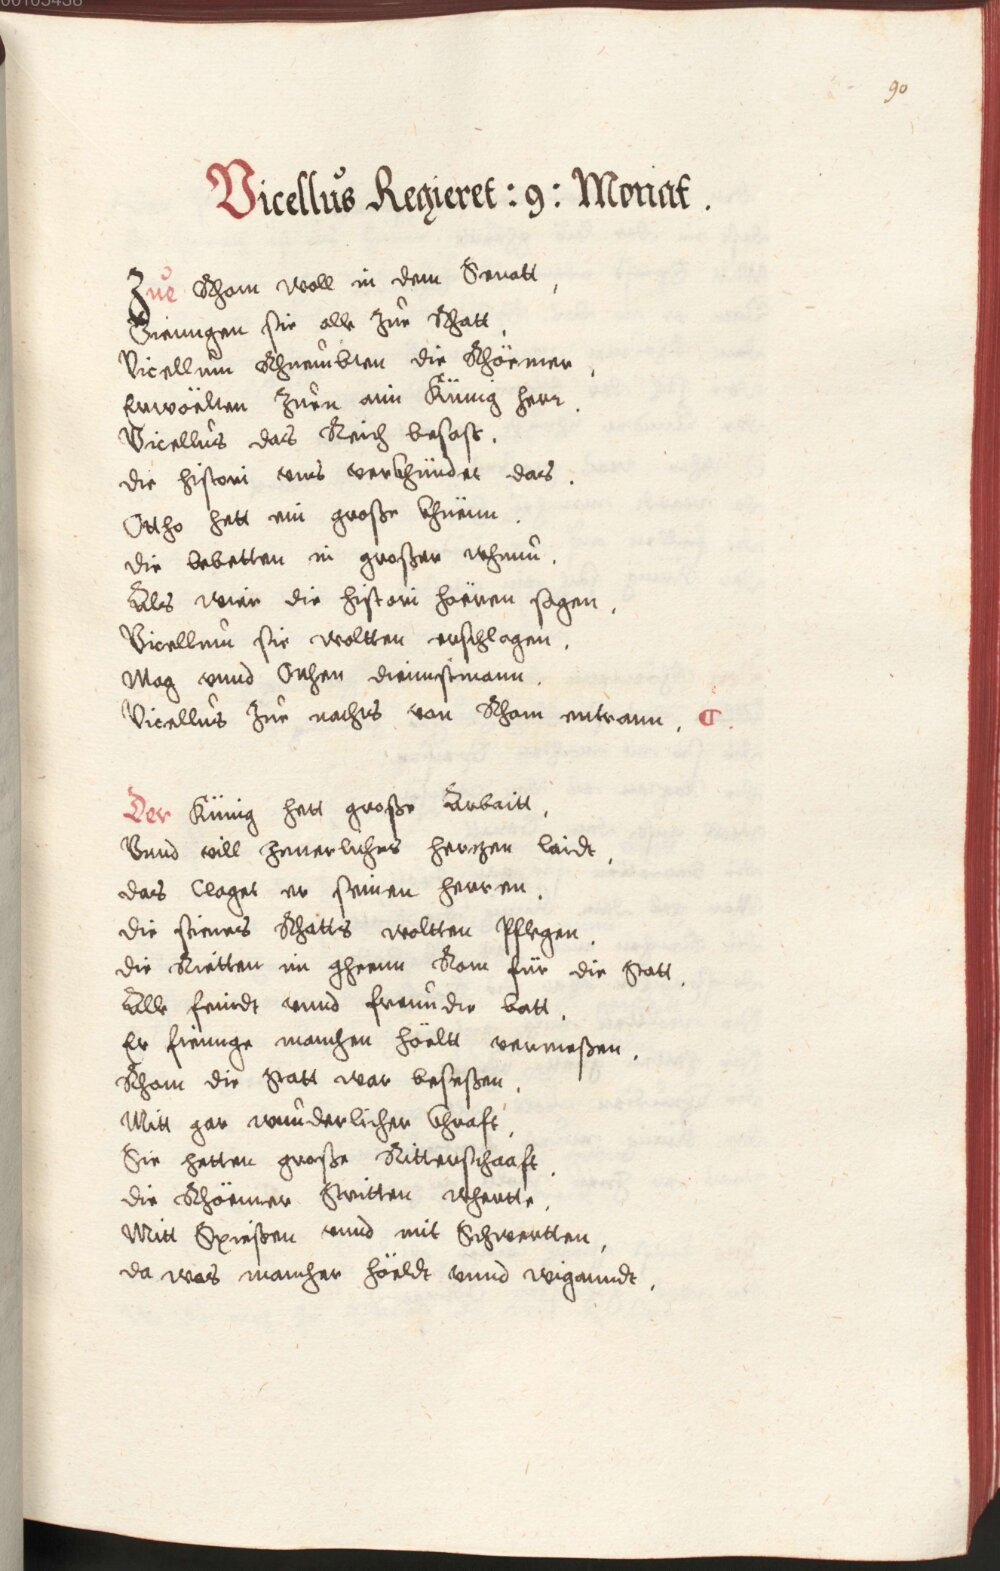 00105458
90
Vicellus Regieret : 9 : Monat .
Zue Rhom woll in dem Senatt ,
Giennngen sie alle Zue Rhatt ,
Vicellum Rhuembten die Rhöemer ,
Erwöelten Zuen ain Künig herr .
Vicellus das Reich besaß .
die histori uns verkhündet das .
Ottho hett ein große khüenn .
die lebetten in großer rhuu .
Als wier die histori hoëren sagen ,
Vicellum sie woltten erschlagen .
Mag vnnd Othen diennstmann .
Vicellus Zue nachts von Rhom entrann . C .
Der Künig hett große Arbaitt ,
Vnnd vill herczen laidt ,
das Claget er seinen herren .
die seines Rhatts woltten Pflegen .
die Rietten im gheenn Rom für die Statt .
Alle feindt vnnd freundte batt .
Er fienge manchen höeltt vermeßen .
Rhom die Statt war beseßen .
Mitt gar wunderlicher khraft ,
Sie hetten große Ritterschaaft .
die Rhöemer Stritten rhertte ,
Mitt Spießen vnnd mit Schwertten ,
da was mancher höeldt vnnd wiganndt .